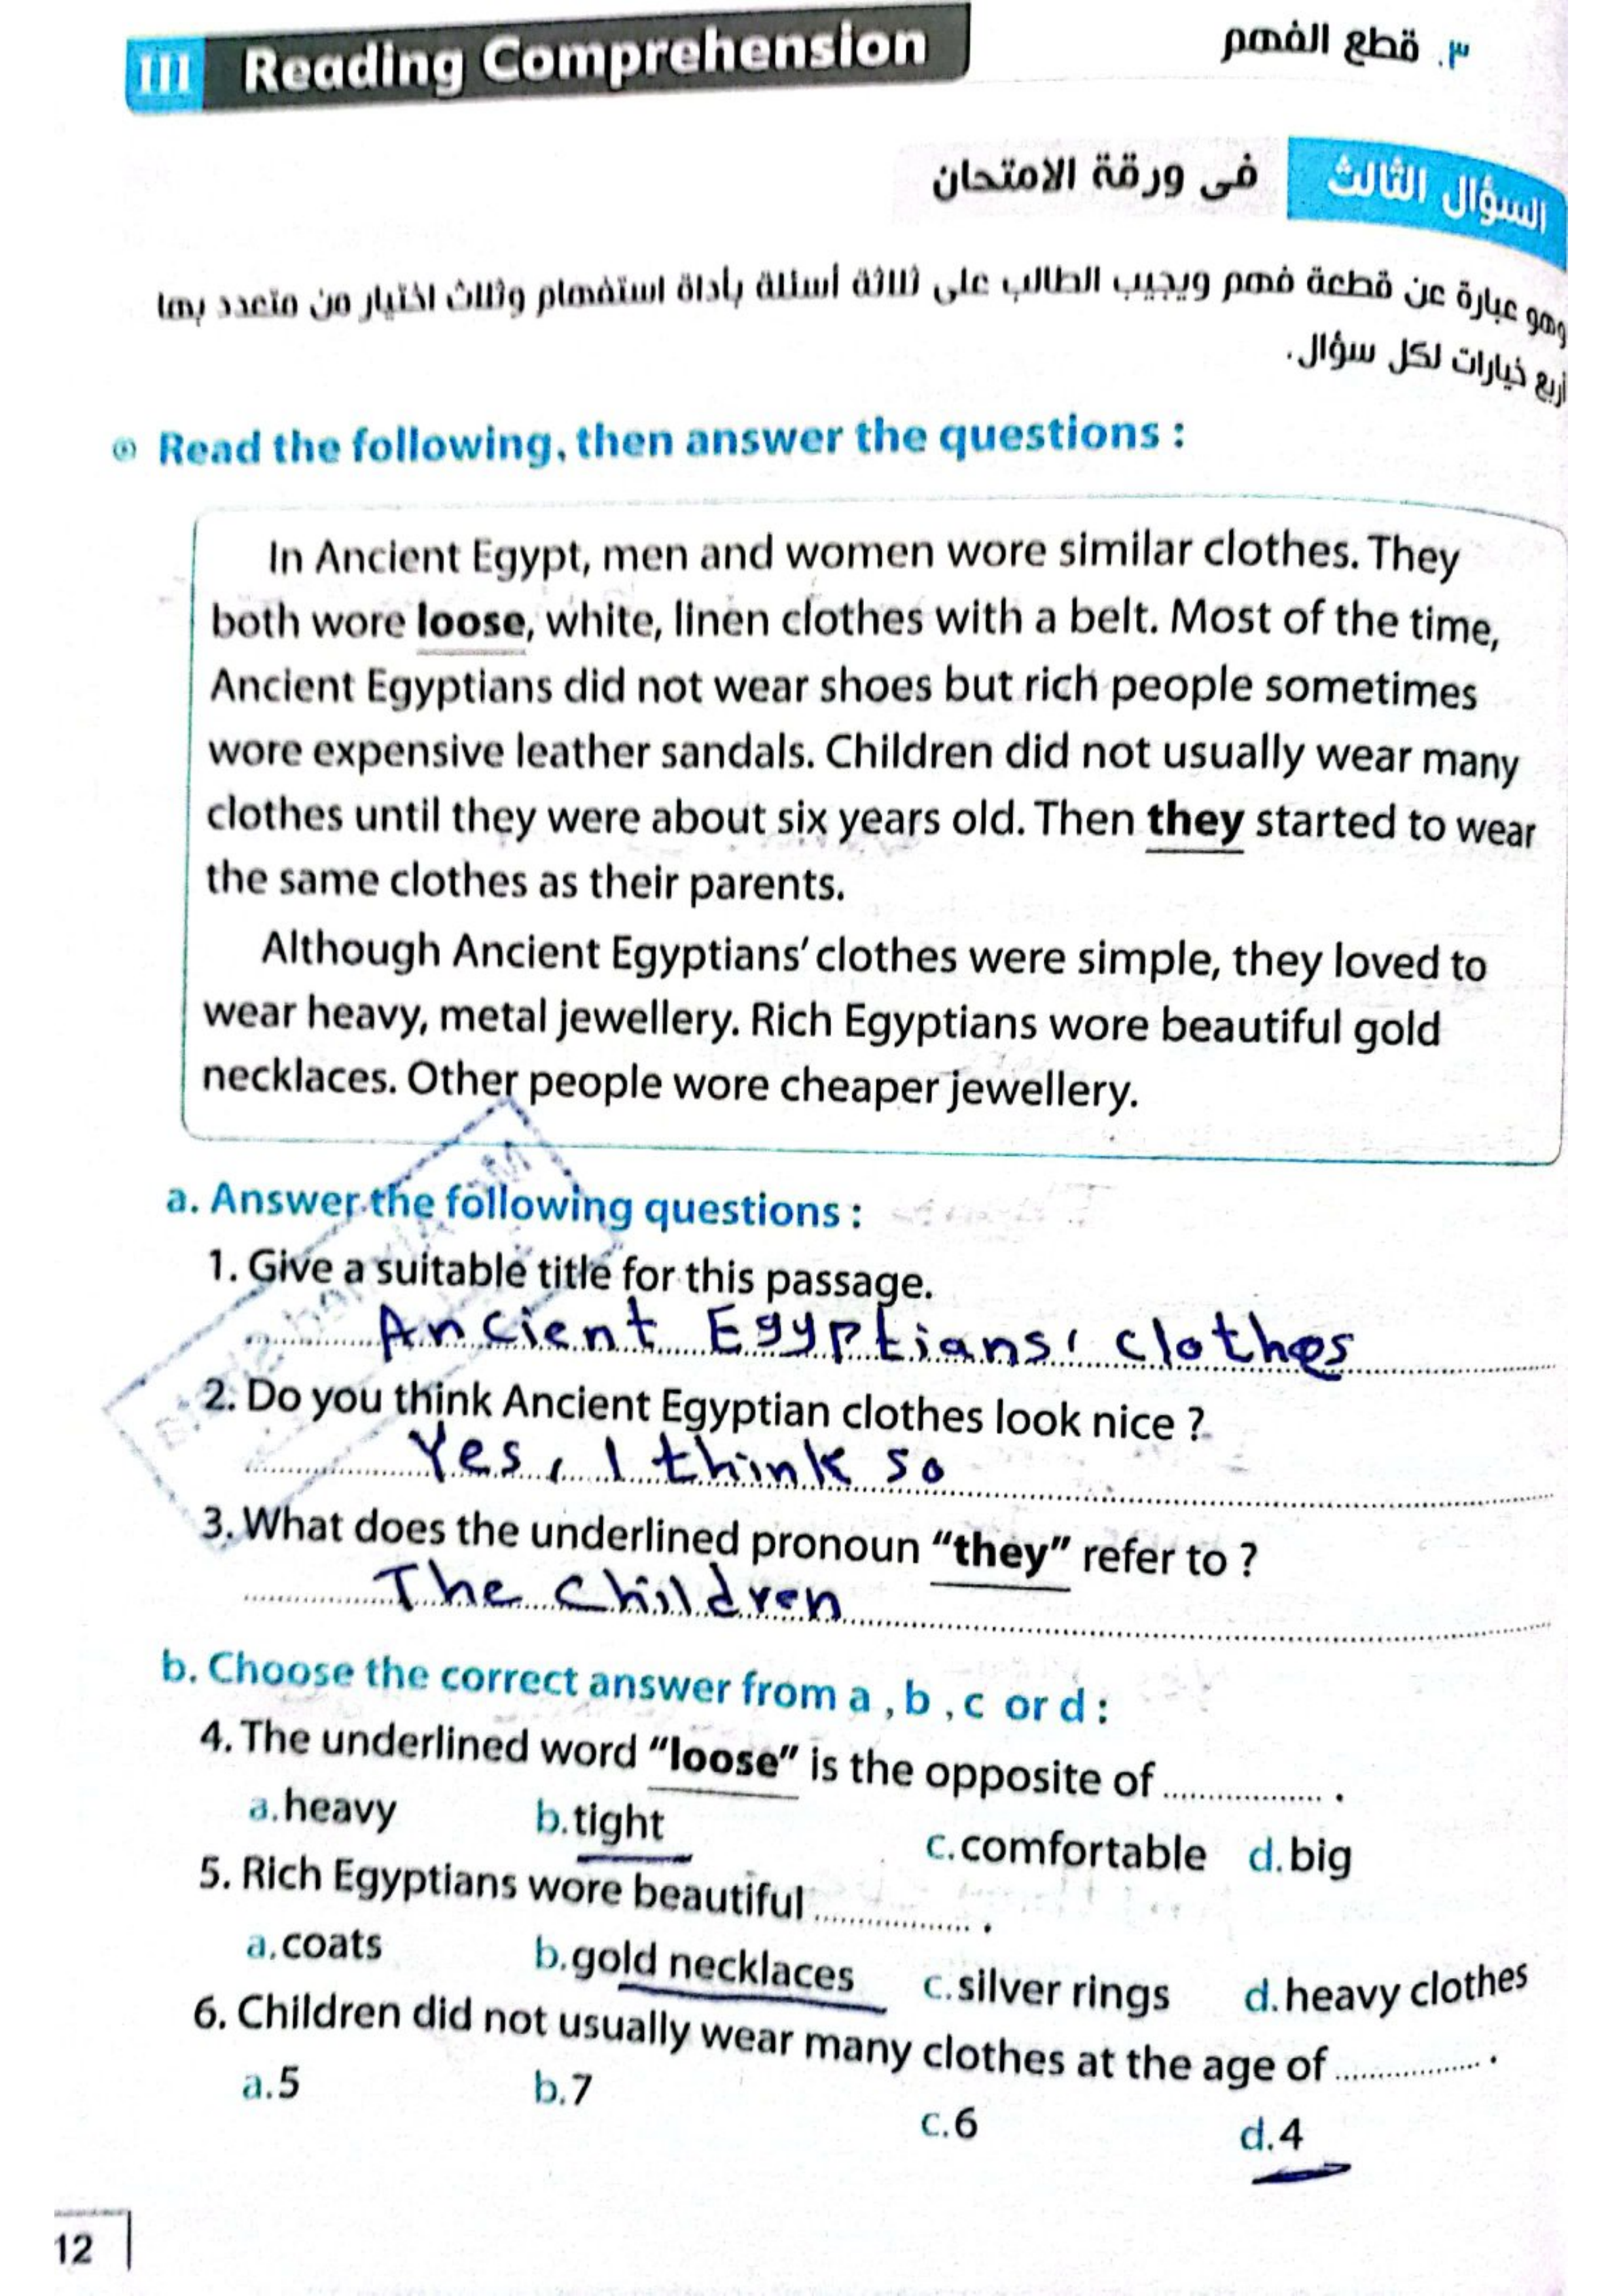 III Reading Comprehension
٣. قطع الفهم
السؤال الثالث فى ورقة الامتحان
وهو عبارة عن قطعة فهم ويجيب الطالب على ثلاثة أسئلة بأداة استفهام وثلاث اختيار من متعدد بها
أربع خيارات لكل سؤال.
Read the following, then answer the questions :
In Ancient Egypt, men and women wore similar clothes. They
both wore loose, white, linen clothes with a belt. Most of the time,
Ancient Egyptians did not wear shoes but rich people sometimes
wore expensive leather sandals. Children did not usually wear many
clothes until they were about six years old. Then they started to wear
the same clothes as their parents.
Although Ancient Egyptians' clothes were simple, they loved to
wear heavy, metal jewellery. Rich Egyptians wore beautiful gold
necklaces. Other people wore cheaper jewellery.
a. Answer the following questions :
1. Give a suitable title for this passage.
Ancient Egyptians' clothes
2. Do you think Ancient Egyptian clothes look nice ?
Yes, I think so
3. What does the underlined pronoun "they" refer to ?
The Children
b. Choose the correct answer from a , b , c or d :
4. The underlined word "loose" is the opposite of .................. .
a. heavy b. tight c. comfortable d. big
5. Rich Egyptians wore beautiful .................. .
a. coats b. gold necklaces c. silver rings d. heavy clothes
6. Children did not usually wear many clothes at the age of .................. .
a. 5 b. 7 c. 6 d. 4
12